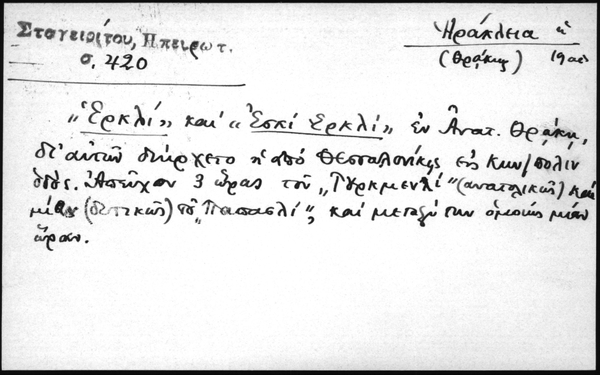 Σταγειρίτου, Ηπειρωτ.
σ. 420
Ἡράκλεια ἡ
(Θρᾴκης) 19 αἰ.
"Ἐρκλί" καί "Ἐσκί Ἐρκλί" ἐν Ἀνατ. Θρᾴκῃ,
δι' αὐτῶν διήρχετο ἡ ἀπό Θεσσαλονίκης εἰς Κων/πολιν
ὁδός. Ἀπεῖχον 3 ὥρας τοῦ "Τυρκμενλί" (ἀνατολικῶς) καί
μίαν (δυτικῶς) τοῦ "Παπασλί", καί μεταξύ των ὁμοίως μίαν
ὥραν.